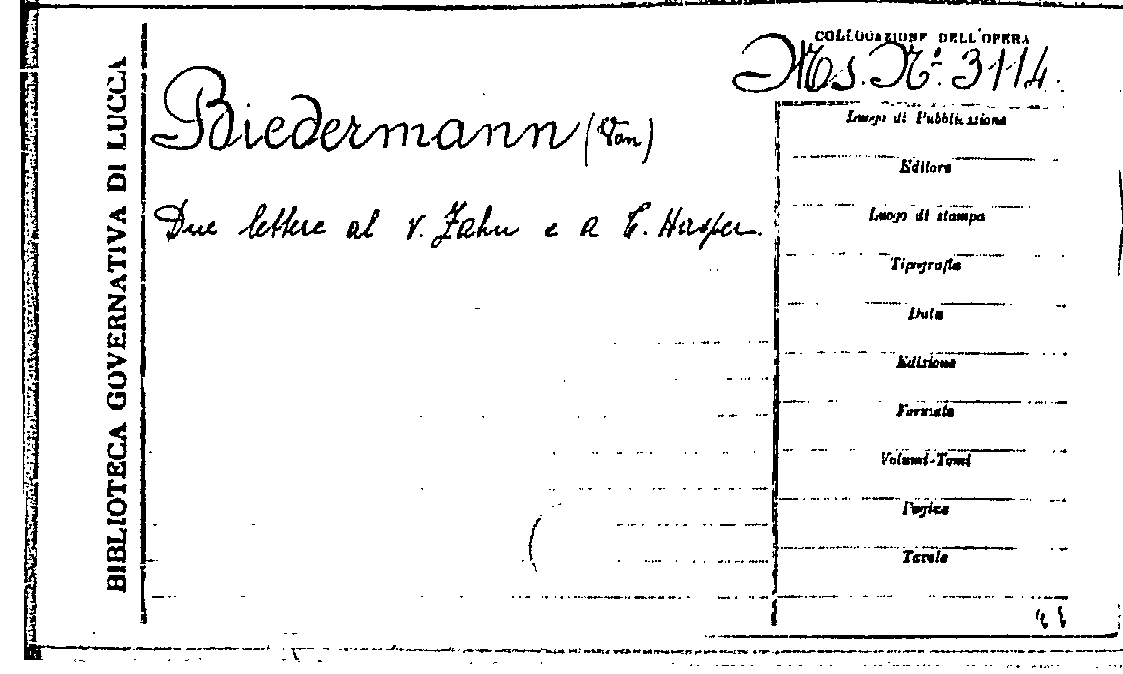 BIBLIOTECA GOVERNATIVA DI LUCCA
COLLOCAZIONE DELL'OPERA
Ms. N.º 3114.
Biedermann (Von)
Due lettere al v. Zahn e a E. Hasper.
Luogo di Pubblicazione
Editore
Luogo di stampa
Tipografia
Data
Edizione
Formato
Volumi-Tomi
Pagine
Tavole